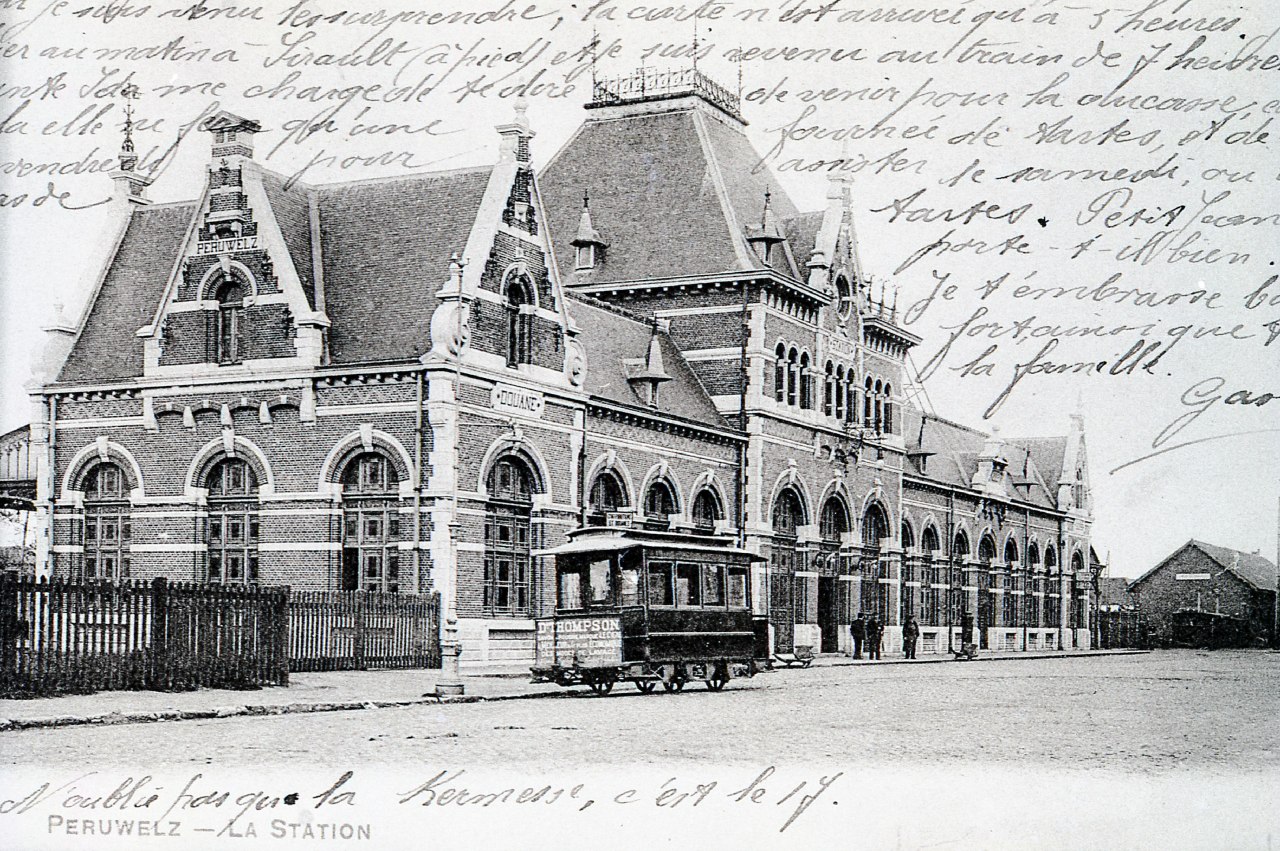 je suis venu te surprendre, la carte n'est arrivée qu'à 5 heures.
au matin à Sirault (à pied) et je suis revenu au train de 7 heures
Ida me charge de te dire de venir pour la ducasse,
la elle fera qu'une fournée de tartes, et de
vendre pour assister le samedi, ou
as de tartes. Petit Jean
porte-t-il bien.
Je t'embrasse
fort, ainsi que
la famille.
PERUWELZ
DOUANE
DR THOMPSON
N'oublie pas que la Kermesse, c'est le 17.
PERUWELZ – LA STATION